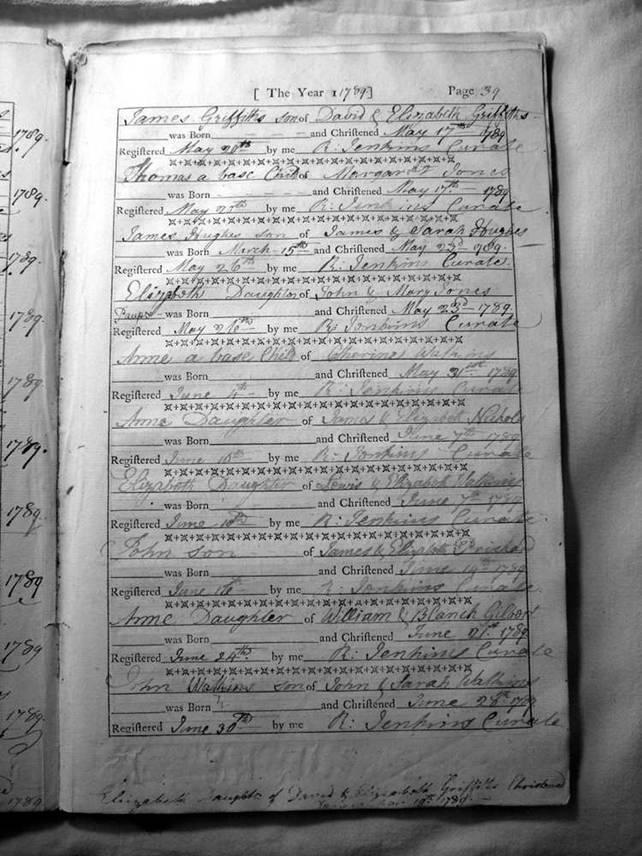 [ The Year 1789 ] Page 39
James Griffiths son of David & Elizabeth Griffiths
was Born and Chriſtened May 17th 1789
Regiſtered May 20th by me R: Jenkins Curate
Thomas a base Child of Margaret Jones
was Born and Chriſtened May 17th 1789
Regiſtered May by me R: Jenkins Curate
James Hughes son of James & Sarah Hughes
was Born March 15th and Chriſtened May 23d 1789.
Regiſtered May 26th by me R: Jenkins Curate.
Elizabeth Daughter of John & Mary Jones
was Born and Chriſtened May 23d 1789.
Regiſtered May 26th by me R: Jenkins Curate
Anne a base Child of Watkins
was Born and Chriſtened May 31st 1789
Regiſtered June 4th by me R: Jenkins Curate
Anne Daughter of James & Elizabeth Nichols
was Born and Chriſtened June 7th 1789
Regiſtered June 10th by me R: Jenkins Curate
Elizabeth Daughter of Lewis & Elizabeth Watkins
was Born and Chriſtened June 7th 1789
Regiſtered June 10th by me R: Jenkins Curate
John son of James & Elizabeth
was Born and Chriſtened June 14th 1789
Regiſtered June by me R: Jenkins Curate
Anne Daughter of William & Blanch Gilbert
was Born and Chriſtened June 21st 1789
Regiſtered June 24th. by me R: Jenkins Curate
John Watkins son of John & Sarah Watkins
was Born and Chriſtened June 28th 1789
Regiſtered June 30th by me R: Jenkins Curate
Elizabeth Daughter of David & Elizabeth Griffiths Christened
19th 1789
1789.
1789.
1789.
1789.
1789.
1789.
1789.
1789
1789.
1789
1789